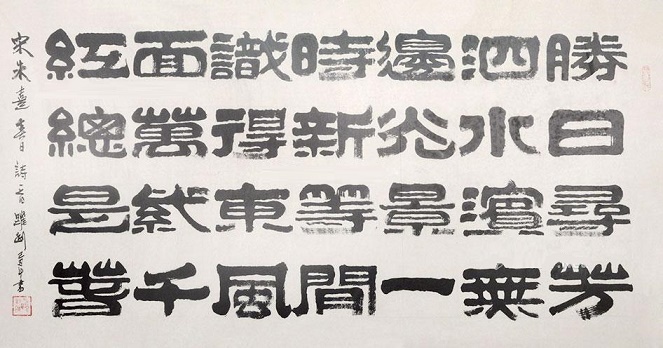 勝日尋芳
泗水濱無
邊光景一
時新等間
識得東風
面萬紫千
紅總是春
宋朱熹春日詩一首 書